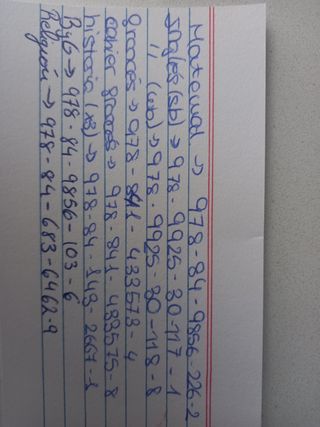 Matemat → 978-84-9856-226-2
Inglés (sb) → 978-9925-30-117-1
" (wb) → 978-9925-30-118-8
francés → 978-841-433573-4
cahier francés → 978-841-433575-8
historia (xB) → 978-84-143-2667-1
ByG → 978-84-9856-103-6
Religion → 978-84-683-6462-9